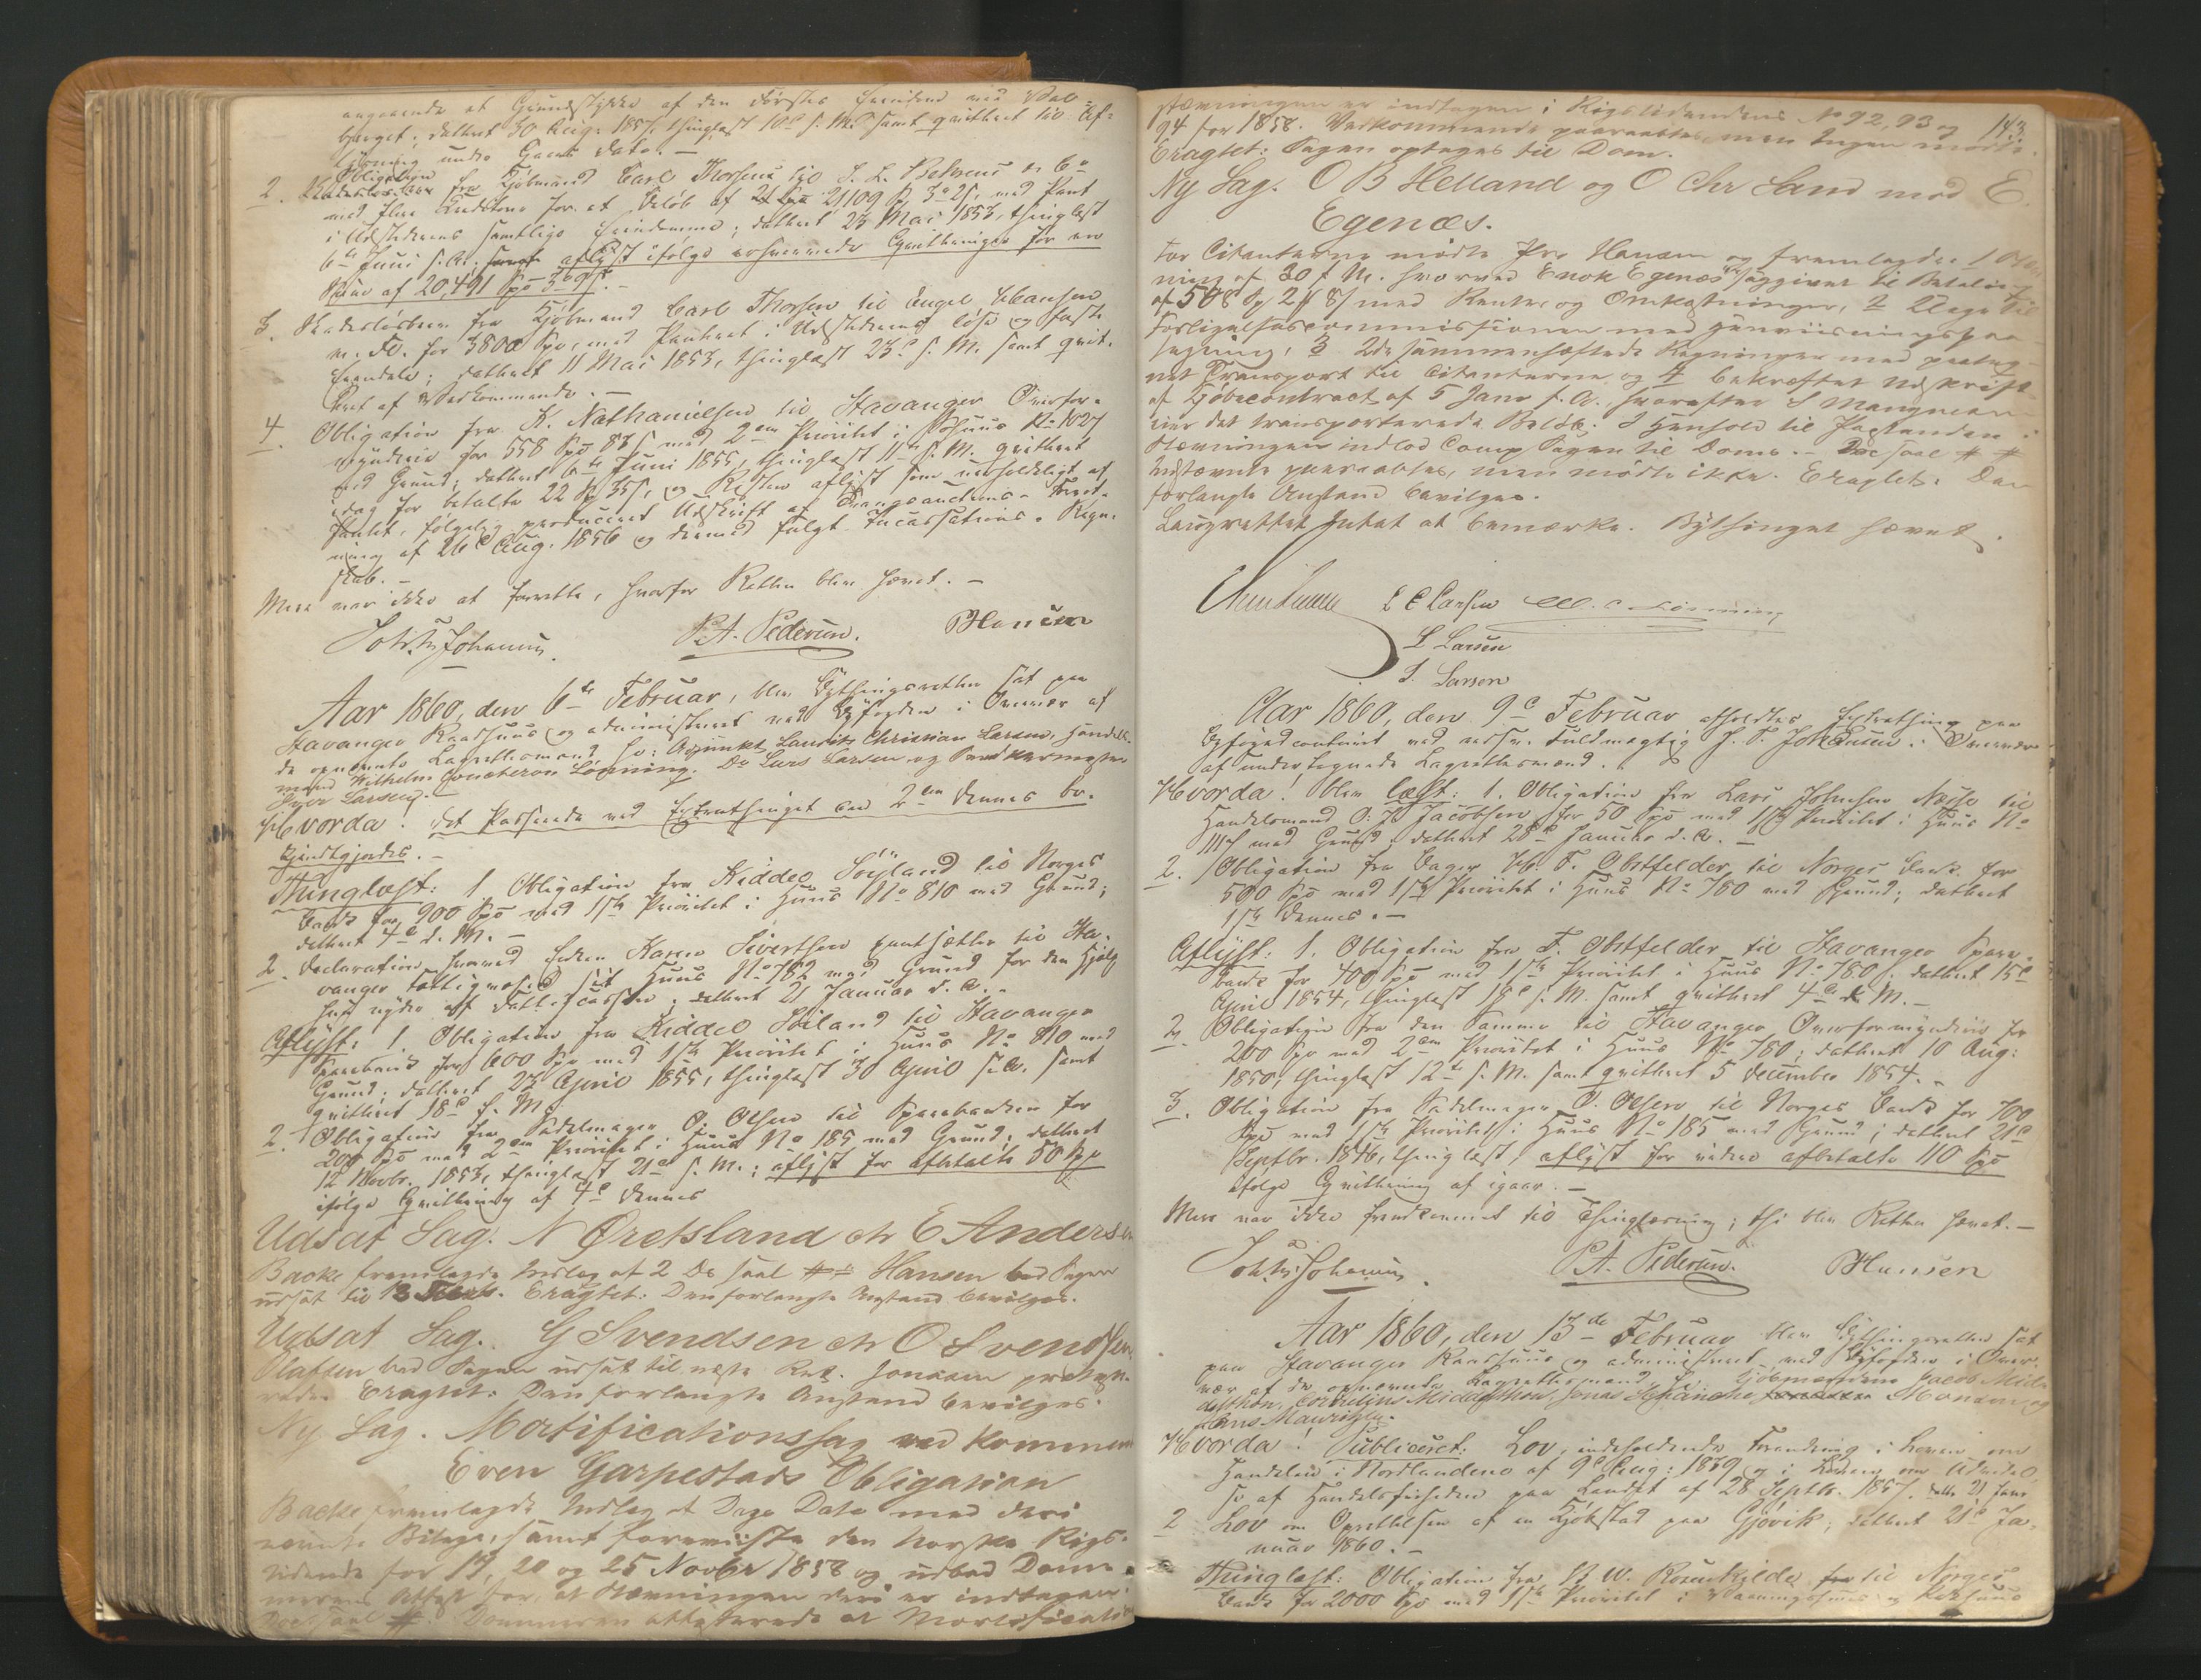 angaaende et Grundstykke af den Førstes Eiendom ved Val-
berget; dateret 30 Aug. 1857, thinglæst 10de s. M. samt qvitteret til Af-
løsning under Gaars Dato. –
2. Obligation fra Kjøbmand Carl Thorsen til J. L. Behrens &
med flere Kreditorer for et Beløb af 21109 Sp 3 25, med Pant
i Udstederens samtlige Eiendomme; dateret 23 Mai 1853, thinglæst
6te Juni s. A. aflyst ifølge erhvervede Qvitteringer for en
Sum af 20,491 Spd 3 9 s. –
3. Skadesløsbrev fra Kjøbmand Carl Thorsen til Engel Hansen
m. Fl. for 3800 Spd, med Panteret i Udstederens løse og faste
Eiendele; dateret 11 Mai 1853, thinglæst 23de s. M. samt qvit-
teret af Vedkommende. –
4. Obligation fra K. Nathanielsen til Stavanger Overfor-
mynderie for 558 Spd 87 s med 2den Prioritet i Huus No 1027
med Grund; dateret 6te Juni 1855, thinglæst 11te s. M. qvitteret
idag for betalte 22 Sp 35 s, og Resten aflyst som uerholdeligt af
Pantet, følgelig produceret Udskrift af Tvangsauctions-Forret-
ning af 26de Aug. 1856 og dermed fulgt Incassations-Regn-
skab. –
Mere var ikke at forrette, hvorfor Retten blev hævet. –
Joh. Johansen P. A. Pedersen. P Hansen
Aar 1860, den 6te Februar, blev Bythingsretten sat paa
Stavanger Raadhuus og administreret ved Byfogden i Overvær af
de opnævnte Lagrettesmænd Hr: Adjunkt Laurits Christian Larsen, Handels-
mand Wilhelm Lønning. Do Lars Larsen og
Iver Larsen. –
Hvorda! det Passerede ved Extrathinget den 2den dennes be-
kjendtgjordes. –
Thinglæst: 1. Obligation fra Kiddel Söyland til Norges
Bank for 900 Spd med 1ste Prioritet i Huus No 810 med Grund;
dateret 4de d. M. –
2. Declaration hvorved Enken Karen Sivertsen pantsætter til Sta-
vanger Fattigvæsen sit Huus No 782 med Grund for den Hjælp
hun nyder af Fattigcassen; dateret 21 Januar d. A. –
Aflyst: 1. Obligation fra Kiddel Söiland til Stavanger
Sparebank for 600 Spd med 1ste Prioritet i Huus No 810 med
Grund; dateret 23 April 1855, thinglæst 30 April s. A. samt
qvitteret 18de f. M.
2. Obligation fra Sadelmager O. Olsen til Sparebanken for
200 Spd med 2den Prioritet i Huus No 185 med Grund; dateret
12 Novbr. 1853, thinglæst 21de s. M.; aflyst for afbetalte 50 Sp
ifølge Qvittering af 4de dennes
Udsat Sag. N Øretsland ctr E Andersen
Backe fremlagde Indlæg af 2 Ds saal. Hansen bad Sagen
udsat til. Eragtet: Den forlangte Anstand bevilges.
Udsat Sag. G Svendsen ctr O Svendsen
Olafsen bad Sagen udsat til næste Ret. Jonassen
Eragtet: Den forlangte Anstand bevilges.
Ny Sag. Mortificationssag ved kommende
Even Garpestads Obligation
Backe fremlagde Indlæg af Dags Dato med deri
nævnte Bilage, samt foreviiste den Norske Rigs-
tidende for 19, 20 og 25 Novbr 1858 og udbad Dom-
merens Attest for, at Stævningen deri er indtagen.
Dommeren attesterede at Mortifications
stævningen er indtagen i Rigstidendens No 92, 93 og 143.
94 for 1858. Vedkommende paaraabtes, men Ingen mødte.
Eragtet: Sagen optages til Dom.
Ny Sag. O B Helland og O Chr Sand mod E.
Egenæs.
For Citanterne mødte Hansen og fremlagde: 1 Stæv
ning af 30 f. M. hvorved Enok Egenæs søges til Betaling
af 508 Sp 2 8 s med Renter og Omkostninger, 2 Klage til
Forligelsescommissionen med Henviisningspaa-
tegning, 3 2de sammenhæftede Regninger med paateg-
net Transport til Citanterne og 4 bekræftet Udskrift
af Kjøbecontract af 5 Janr f. A., hvorefter
det transporterede Beløb. I Henhold til Paastanden i
Stævningen indlod Comp Sagen til Doms. – saal
Indstævnte paaraabtes, men mødte ikke. Eragtet: Den
forlangte Anstand bevilges.
Laugrettet Intet at bemærke. Bythinget hævet.
L C Larsen W. C Lønning
L Larsen
I. Larsen
Aar 1860, den 9de Februar afholdtes Extrathing paa
Byfogdcontoiret ved edsv. Fuldmægtig J. T. Johansen i Overvær
af undertegnede Lagrettesmænd.
Hvorda! blev læst: 1. Obligation fra Lars Johnsen Næsse til
Handelsmand O: J: Jacobsen for 50 Spd med 1ste Prioritet i Huus No
med Grund; dateret 28de Januar d. A. –
2. Obligation fra Bager T. Obstfelder til Norges Bank for
500 Spd med 1ste Prioritet i Huus No 780 med Grund; dateret
1ste dennes. –
Aflyst: 1. Obligation fra T. Obstfelder til Stavanger Spare-
bank for 400 Spd med 1ste Prioritet i Huus No 780; dateret 15de
April 1854, thinglæst 18de s. M. samt qvitteret 4de d. M. –
2. Obligation fra den Samme til Stavanger Overformynderie for
200 Spd med 2den Prioritet i Huus No 780; dateret 10 Aug:
1850, thinglæst 12te s. M. samt qvitteret 5 December 1854. –
3. Obligation fra Sadelmager O. Olsen til Norges Bank for 700
Spd med 1ste Prioritet i Huus No 185 med Grund; dateret 21de
Septbr. 1846, thinglæst, aflyst for videre afbetalte 110 Spd
ifølge Qvittering af igaar. –
Mere var ikke fremkommet til Thinglæsning; thi blev Retten hævet. –
Joh. Johansen. P. A. Pedersen. P Hansen
Aar 1860, den 13de Februar blev Bythingsretten sat
paa Stavanger Raadhuus og administreret ved Byfogden i Over-
vær af de opnævnte Lagrettesmænd Hr. Kjøbmændene Jacob Mid-
delthon, Cornelius Middelthon, Jonas Schanche Monsen og
Mauritzen.
Hvorda! Publiceret: Lov, indeholdende Forandring i Loven om
Handelen i Nordlandene af 9de Aug: 1839 og i Loven om Udvidel-
se af Handelsfriheden paa Landet af 28 Septbr. 1857. datr 21 Janr
2 Lov om Oprettelsen af en Kjøbstad paa Gjøvik; dateret 21de Ja-
nuar 1860. –
Thinglæst: Obligation fra W. Rosenkilde til Norges
Bank for 2000 Spd med 1ste Prioritet i Vaaningshuus og Søehuus